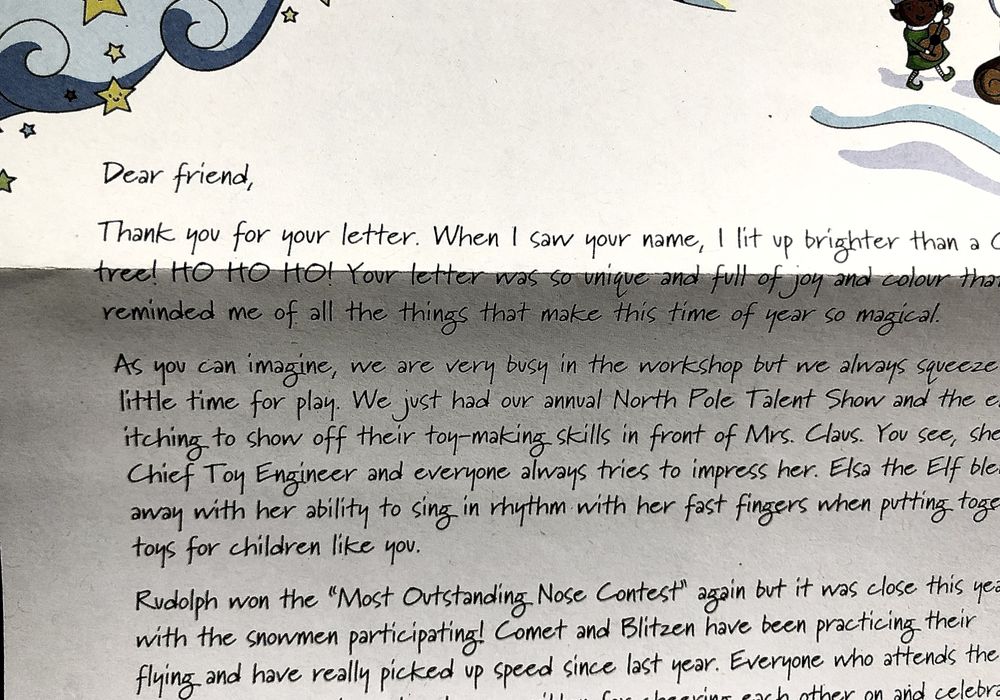 Dear friend,
Thank you for your letter. When I saw your name, I lit up brighter than a C
tree! HO HO HO! Your letter was so unique and full of joy and colour that
reminded me of all the things that make this time of year so magical.
As you can imagine, we are very busy in the workshop but we always squeeze
little time for play. We just had our annual North Pole Talent Show and the e
itching to show off their toy-making skills in front of Mrs. Claus. You see, she
Chief Toy Engineer and everyone always tries to impress her. Elsa the Elf ble
away with her ability to sing in rhythm with her fast fingers when putting toge
toys for children like you.
Rudolph won the "Most Outstanding Nose Contest" again but it was close this yea
with the snowmen participating! Comet and Blitzen have been practicing their
flying and have really picked up speed since last year. Everyone who attends the
for cheering each other on and celebra